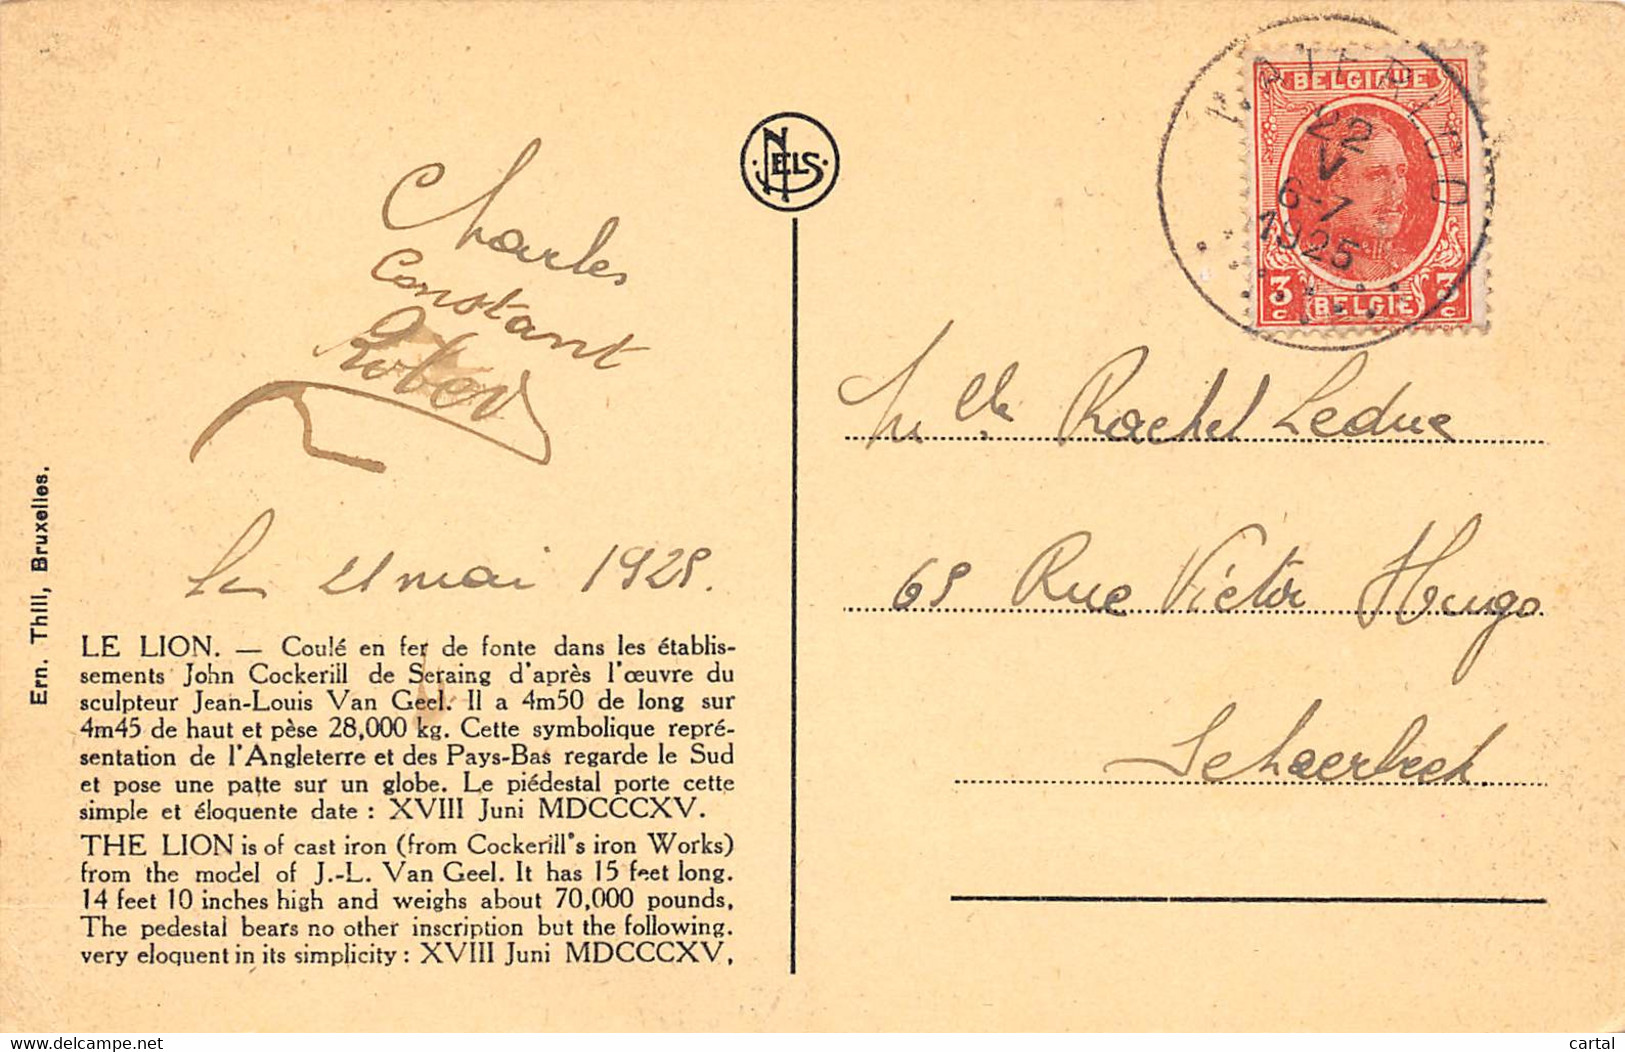 Charles
Constant
Robert
Le 21 mai 1925.
LE LION. — Coulé en fer de fonte dans les établis-
sements John Cockerill de Seraing d'après l'œuvre du
sculpteur Jean-Louis Van Geel. Il a 4m50 de long sur
4m45 de haut et pèse 28,000 kg. Cette symbolique repré-
sentation de l'Angleterre et des Pays-Bas regarde le Sud
et pose une patte sur un globe. Le piédestal porte cette
simple et éloquente date : XVIII Juni MDCCCXV.
THE LION is of cast iron (from Cockerill's iron Works)
from the model of J.-L. Van Geel. It has 15 feet long.
14 feet 10 inches high and weighs about 70,000 pounds,
The pedestal bears no other inscription but the following.
very eloquent in its simplicity : XVIII Juni MDCCCXV,
Ern. Thill, Bruxelles.
NELS
BELGIQUE
3c BELGIË 3c
22
V
6-7
1925
Melle Rachel Leduc
69 Rue Victor Hugo
Schaerbeek
delcampe.net
cartal